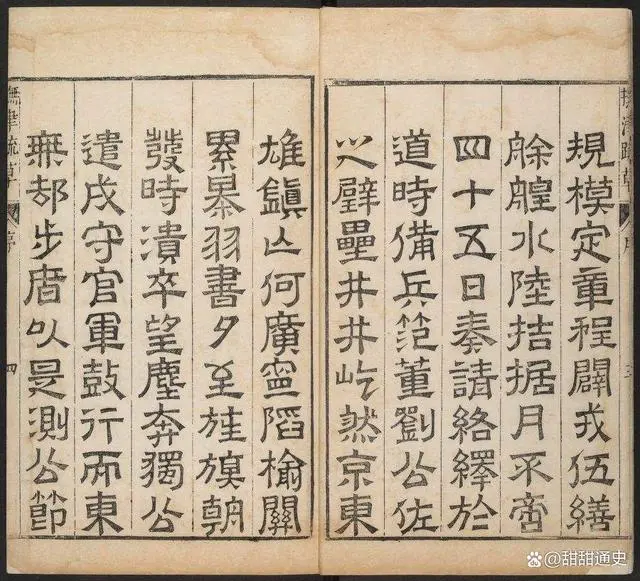 規模定章程闢戎伍繕
艅艎水陸拮据月不啻
四十五日奏請絡繹於
道時備兵范董劉公佐
之壁壘井井屹然京東
雄鎮亾何廣寧陷榆關
累㬥羽書夕至旌旗朝
發時潰卒望塵奔獨公
遣戍守官軍鼓行而東
無却步者以是測公節
撫津疏草
序
四
@甜甜通史